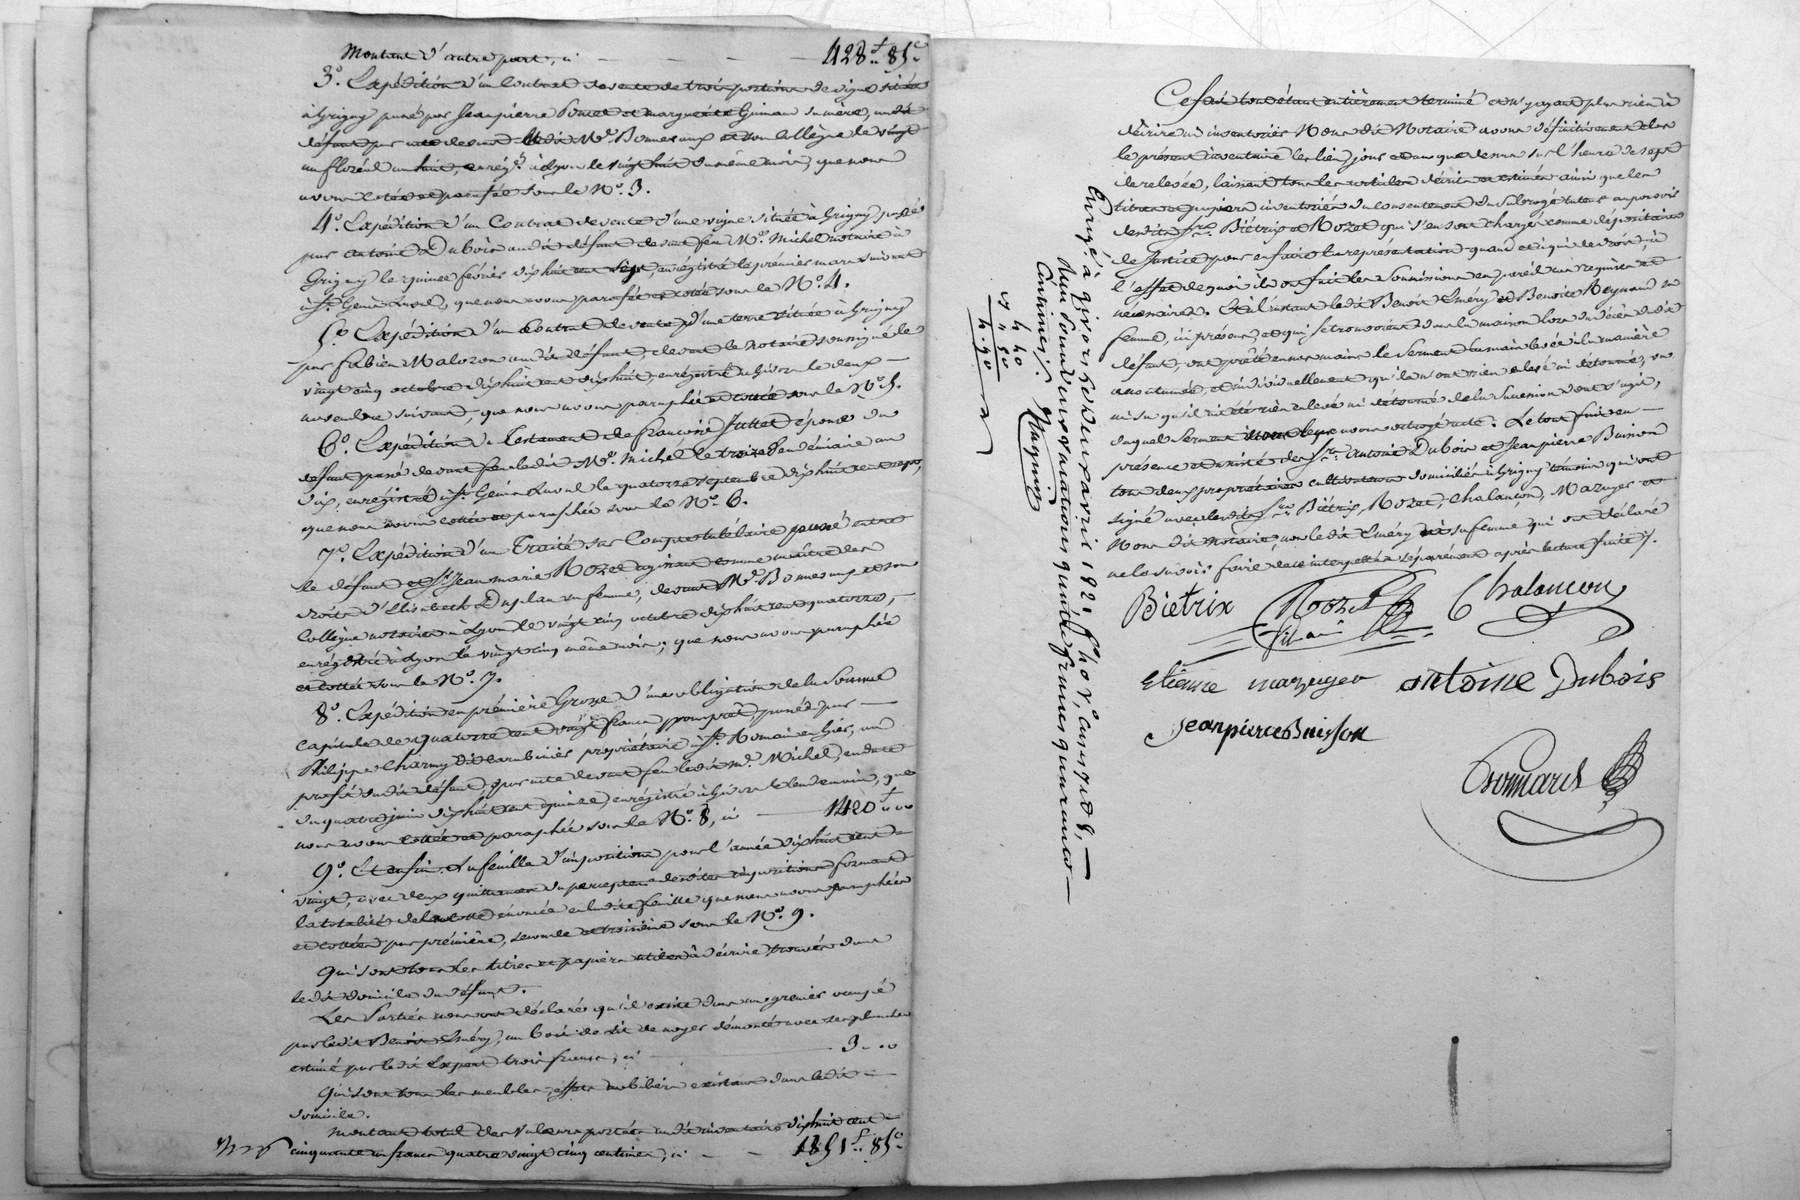 Montant d'autre part, ci — — — 428 f 85 c
3o. Expédition d'un Contrat de vente de trois portions de vigne située
à Grigny passé par Jeanpierre Poncet et marguerite Guinan sa mère, audit
défunt par acte devant ledit Me. Bonnevaux et son Collègue le vingt
un floréal an huit, enrégé. à Lyon le vingt huit du même mois, que nous
avons cotée et parafée sous le No. 3.
4o. Expédition d'un Contrat de vente d'une vigne située à Grigny, passé
par antoine Dubois audit défunt devant feu Me. Michel notaire à
Grigny le quinze février dixhuit cent sept, enrégistré le premier mars suivant
à St. Genis Laval, que nous avons parafée et cotée sous le No. 4.
5o. Expédition d'un Contrat de vente d'une terre située à Grigny
par fabien Malozon audit défunt, devant le notaire soussigné le
vingt cinq octobre dixhuit cent dixhuit, enrégistré à Givors le deux —
novembre suivant, que nous avons paraphée et cotée sous le No. 5.
6o. Expédition du Testament de françoise Juttet épouse du
défunt passé devant feu ledit Me. Michel le troize vendémiaire an
dix, enrégistré à St. Genis Laval le quatorze septembre dixhuit cent sept,
que nous avons cottée et paraphée sous le No. 6.
7o. Expédition d'un Traité sur Compte tutélaire passé entre
le défunt et Sr. Jean marie Rozet agissant comme maître des
droits d'Elisabeth Duplan sa femme, devant Me. Bonnevaux et son
Collègue notaires à Lyon le vingt cinq octobre dixhuit cent quatorze, —
enrégistré à Lyon le vingt cinq même mois, que nous avons paraphée
et cottée sous le No. 7.
8o. Expédition en première Grosse d'une obligation de la Somme
Capitale de quatorze cent vingt francs pour prêt, passée par —
Philippe Charmy dit Carabinier propriétaire à St. Romain en Gier, au
profit dudit défunt, par acte devant feu ledit Me. Michel, en date
du quatre juin dixhuit cent quinze, enrégistré à Givors le lendemain, que
nous avons cottée et paraphée sous le No. 8, ci — 1420 f 00
9o. Et enfin la feuille d'impositions pour l'année dixhuit cent
vingt, avec deux quittances du percepteur desdites impositions formant
la totalité de la cotte énoncée en ladite feuille que nous avons paraphées
et cottées par première, seconde et troisième sous le No. 9.
Qui sont tous les titres et papiers utiles à décrire, trouvés dans
ledit domicile du défunt.
Les Parties nous ont déclaré qu'il existe dans un grenier occupé
par ledit Benoit Eméry, un bois de lit de noyer démonté avec ses planches
estimé par ledit Expert trois francs, ci — 3 . 00
Qui sont tous les meubles, effets mobiliers existans dans ledit —
domicile.
Montant total des valeurs portées audit inventaire dixhuit cent
cinquante un francs quatre vingt cinq centimes, ci — — 1851 f 85 c
Ce fait tout étant entièrement terminé et n'y ayant plus rien à
décrire ni inventorier Nous dit Notaire avons définitivement clos
le présent inventaire les lieu, jour et an que dessus sur l'heure de sept
de relevée, laissant tous les articles décrits et estimés ainsi que les
titres et papiers inventoriés du consentement du subrogé tuteur au pouvoir
desdits Srs. Biétrix et Rozet qui s'en sont chargés comme dépositaires
de Justice pour en faire la représentation quand et à qui de droit, à
l'effet de quoi ils ont fait les Soumissions en pareil cas requises et
nécessaires. Et à l'instant ledit Benoit Eméry et Benoite Reynaud sa
femme, ici présens, et qui se trouvoient dans la maison lors du décès dudit
défunt, ont prêté en nos mains le Serment la main levée à la manière
accoutumée, et individuellement qu'ils n'ont rien enlevé ni détourné, vu
ni su qu'il ait été rien enlevé ni détourné de la succession dont s'agit,
duquel Serment nous leur avons octroyé acte. Le tout fait en —
présence et assisté des Srs. antoine Dubois et Jeanpierre Buisson
tous deux propriétaires cultivateurs domiciliés à Grigny témoins qui ont
signé avec lesdits Srs. Biétrix, Rozet, Chalançon, Mazuyer et
Nous dit Notaire, non ledit Eméry et sa femme qui ont déclaré
ne le savoir faire de ce interpellés séparément après lecture faite.
Biétrix Rozet Chalancon
filair
Etienne mazuyer antoine Dubois
Jeanpierre Buisson
Bonnard
Enrégé. à givors le deux avril 1821 fho. vo. cases 7 et 8, —
Reçu pour deux vacations quatre francs quarante —
Centimes.
4 40
" 50
4 . 90